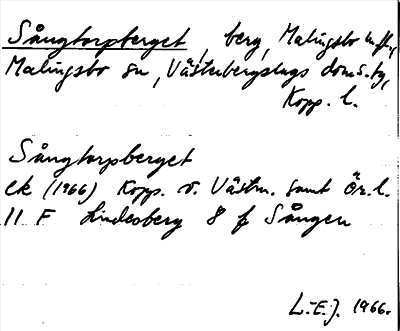 Sångtorpberget, berg, Malingsbo kbfd.,
Malingsbo sn, Västerbergslags doms.,
Kopp. l.
Sångtorpberget
ek (1966) Kopp. o. Västm. samt Ör. l.
11 F Lindesberg 8 f Sången
L.-E. J. 1966.